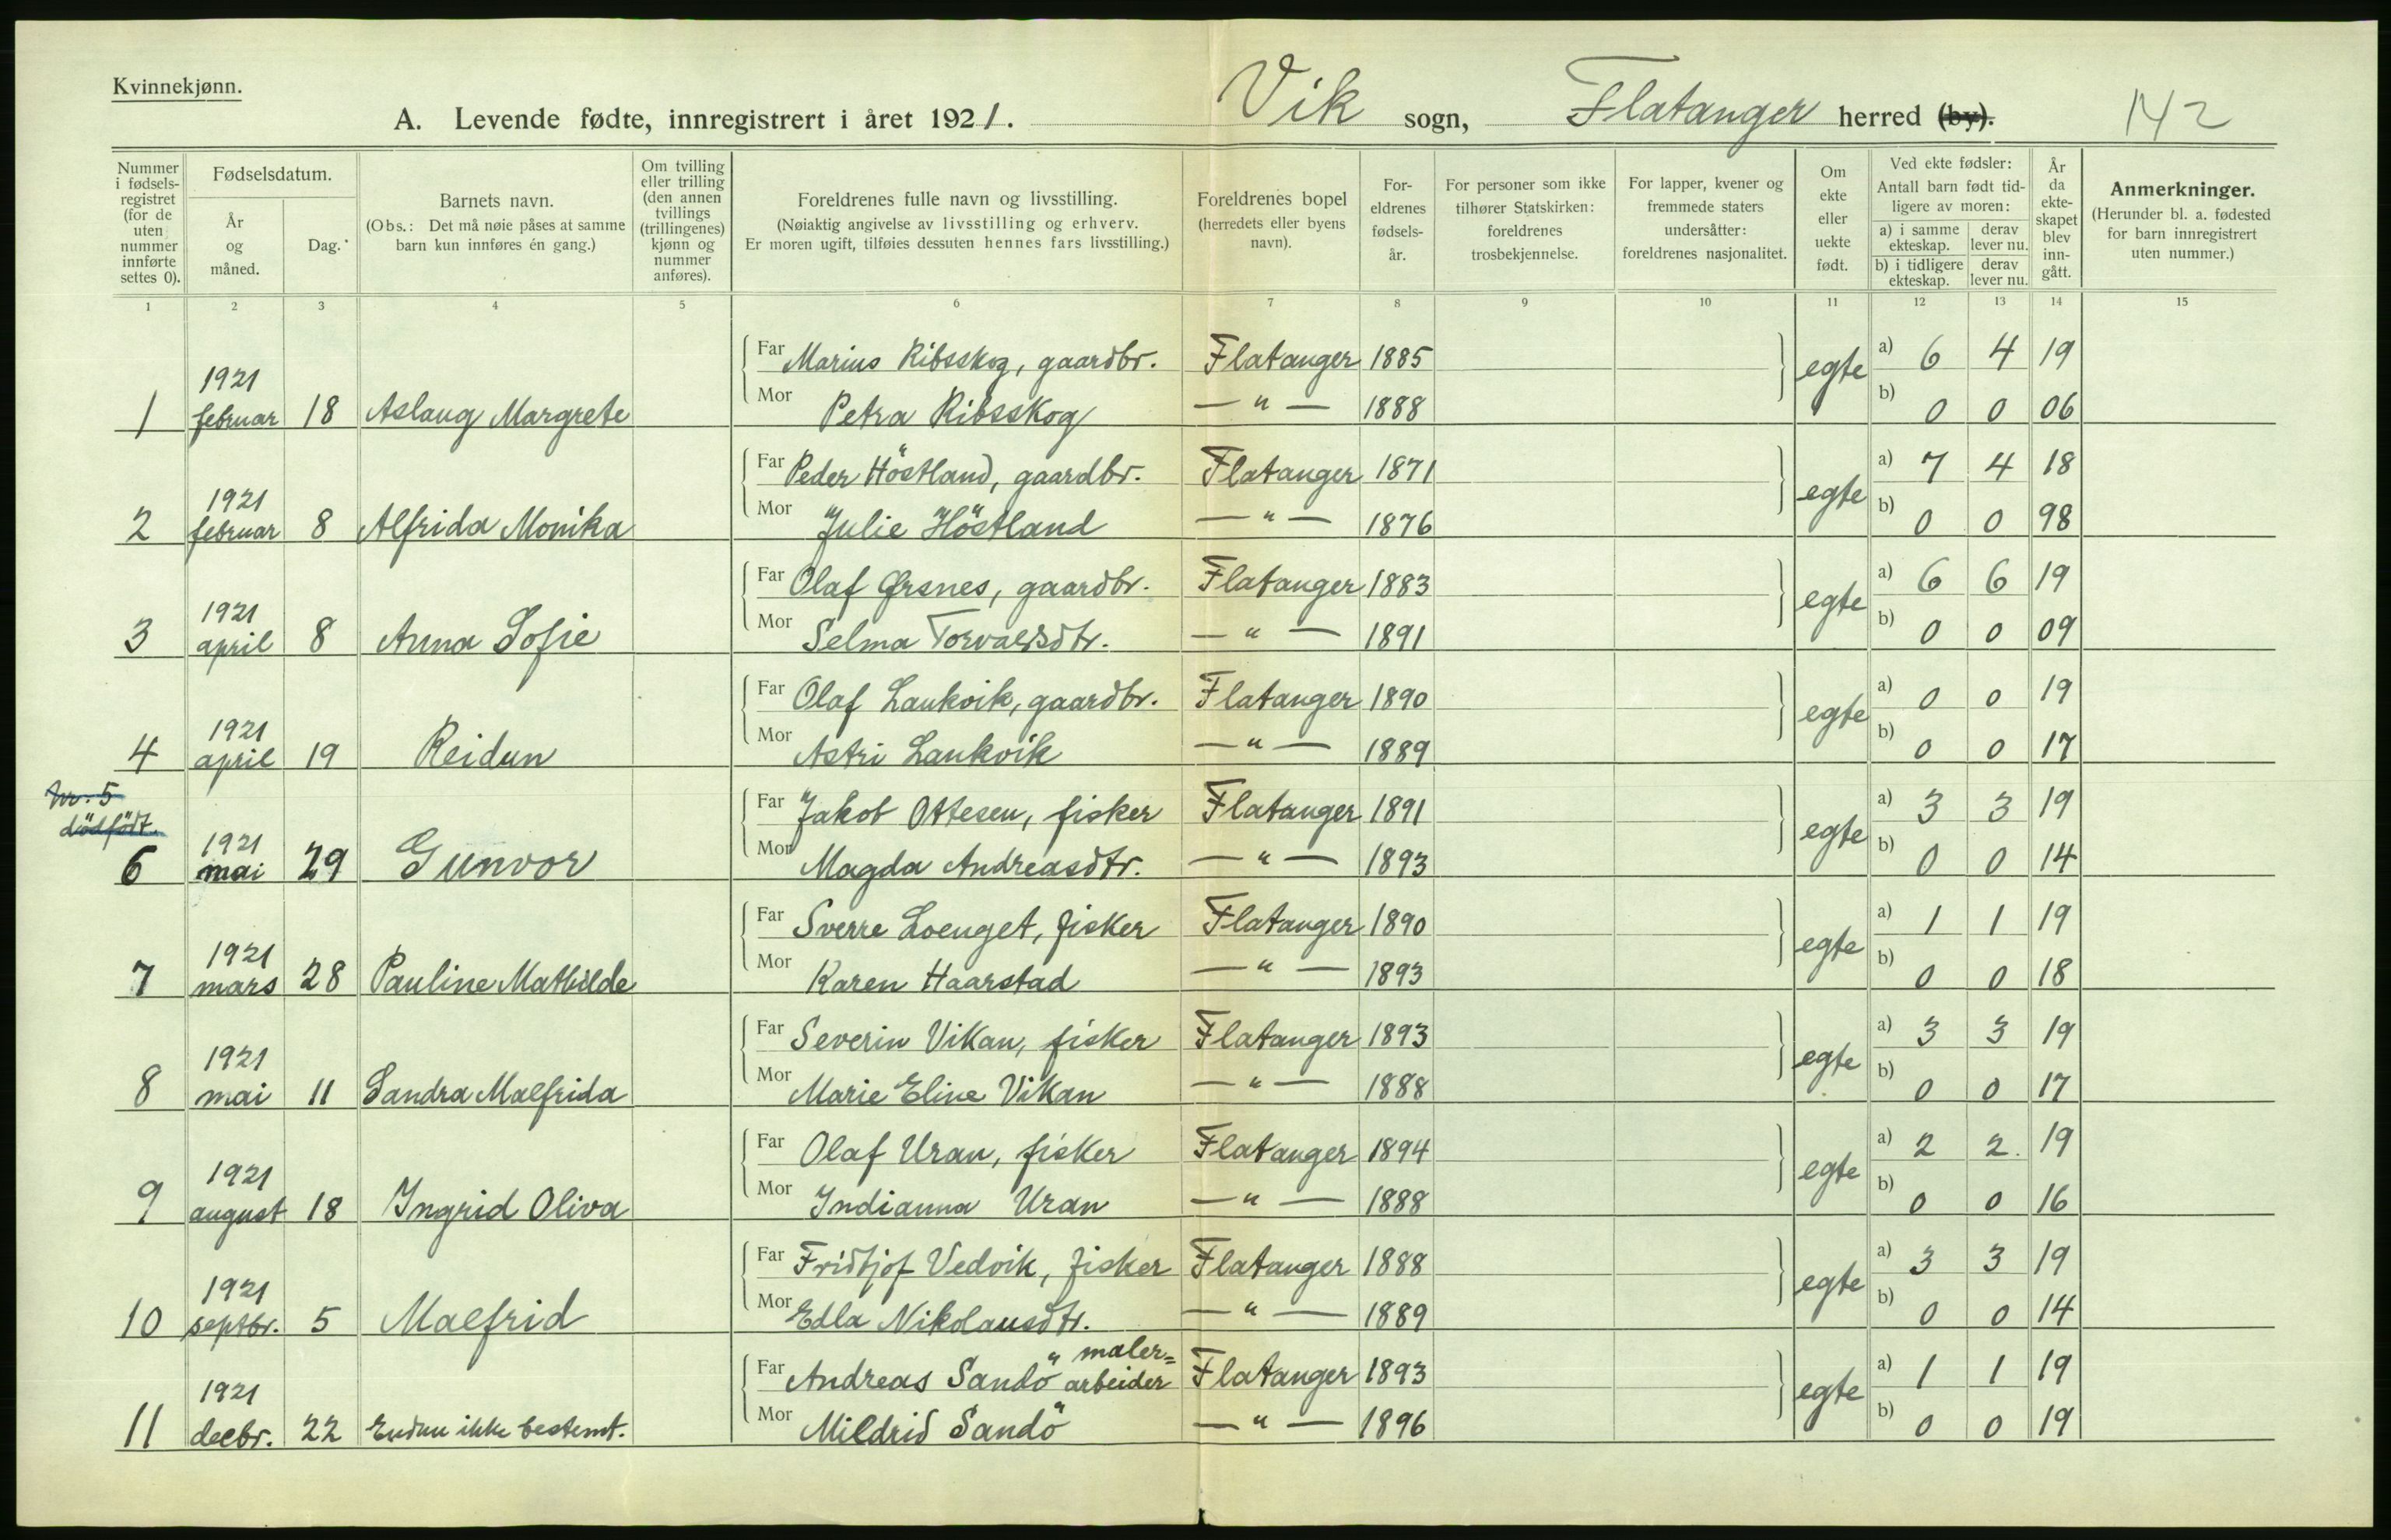 Kvinnekjønn.
A. Levende fødte, innregistrert i året 1921. Vik sogn, Flatanger herred (by). 142
Nummer i fødsels-registret (for de uten nummer innførte settes 0).
Fødselsdatum.
År og måned.
Dag.
Barnets navn.
(Obs.: Det må nøie påses at samme barn kun innføres én gang.)
Om tvilling eller trilling (den annen tvillings (trillingenes) kjønn og nummer anføres).
Foreldrenes fulle navn og livsstilling.
(Nøiaktig angivelse av livsstilling og erhverv.
Er moren ugift, tilføies dessuten hennes fars livsstilling.)
Foreldrenes bopel
(herredets eller byens navn).
For-eldrenes fødsels-år.
For personer som ikke tilhører Statskirken: foreldrenes trosbekjennelse.
For lapper, kvener og fremmede staters undersåtter: foreldrenes nasjonalitet.
Om ekte eller uekte født.
Ved ekte fødsler:
Antall barn født tid-ligere av moren:
a) i samme ekteskap. derav lever nu.
b) i tidligere ekteskap. derav lever nu.
År da ekte-skapet blev inn-gått.
Anmerkninger.
(Herunder bl. a. fødested for barn innregistrert uten nummer.)
1 2 3 4 5 6 7 8 9 10 11 12 13 14 15
Far Marius Ribsskog, gaardbr. Flatanger 1885 egte a) 6 4 19
1 1921 februar 18 Aslaug Margrete Mor Petra Ribsskog — " — 1888 b) 0 0 06
Far Peder Höstland, gaardbr. Flatanger 1871 egte a) 7 4 18
2 1921 februar 8 Alfrida Monika Mor Julie Höstland — " — 1876 b) 0 0 98
Far Olaf Ørsnes, gaardbr. Flatanger 1883 egte a) 6 6 19
3 1921 april 8 Anna Sofie Mor Selma Torvaldsdtr. — " — 1891 b) 0 0 09
Far Olaf Laukvik, gaardbr. Flatanger 1890 egte a) 0 0 19
4 1921 april 19 Reidun Mor Astri Laukvik — " — 1889 b) 0 0 17
Nr. 5
dödfödt.
Far Jakob Ottesen, fisker Flatanger 1891 egte a) 3 3 19
6 1921 mai 29 Gunvor Mor Magda Andreasdtr. — " — 1893 b) 0 0 14
Far Sverre Loenget, fisker Flatanger 1890 egte a) 1 1 19
7 1921 mars 28 Pauline Mathilde Mor Karen Haarstad — " — 1893 b) 0 0 18
Far Severin Vikan, fisker Flatanger 1893 egte a) 3 3 19
8 1921 mai 11 Sandra Malfrida Mor Marie Eline Vikan — " — 1888 b) 0 0 17
Far Olaf Uran, fisker Flatanger 1894 egte a) 2 2. 19
9 1921 august 18 Ingrid Oliva Mor Indianna Uran — " — 1888 b) 0 0 16
Far Fridtjof Vedvik, fisker Flatanger 1888 egte a) 3 3 19
10 1921 septbr. 5 Malfrid Mor Edla Nikolausdtr. — " — 1889 b) 0 0 14
Far Andreas Sandö maler=arbeider Flatanger 1893 egte a) 1 1 19
11 1921 decbr. 22 Endnu ikke bestemt. Mor Mildrid Sandö — " — 1896 b) 0 0 19